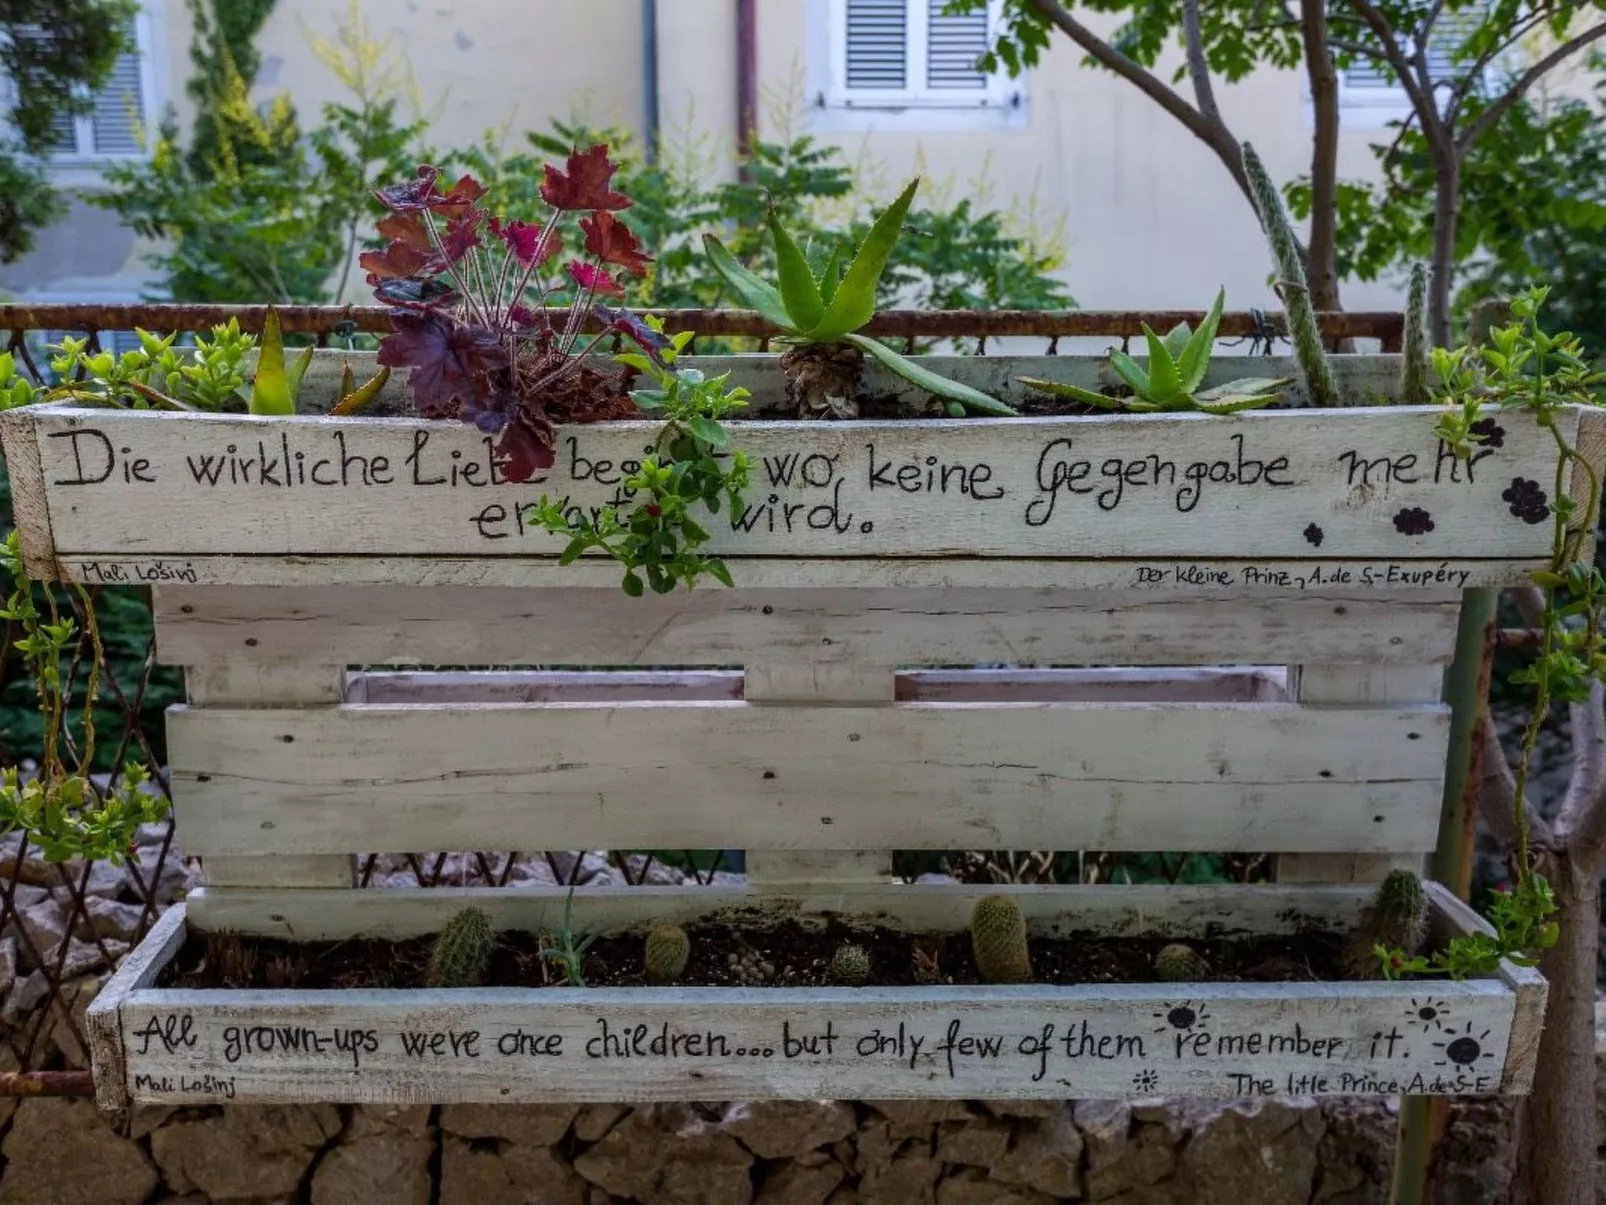 Die wirkliche Liebe beginnt wo keine Gegengabe mehr
erwartet wird.
Mali Lošinj
Der kleine Prinz, A. de S-Exupéry
All grown-ups were once children... but only few of them remember it.
Mali Lošinj
The litle Prince, A. de S-E